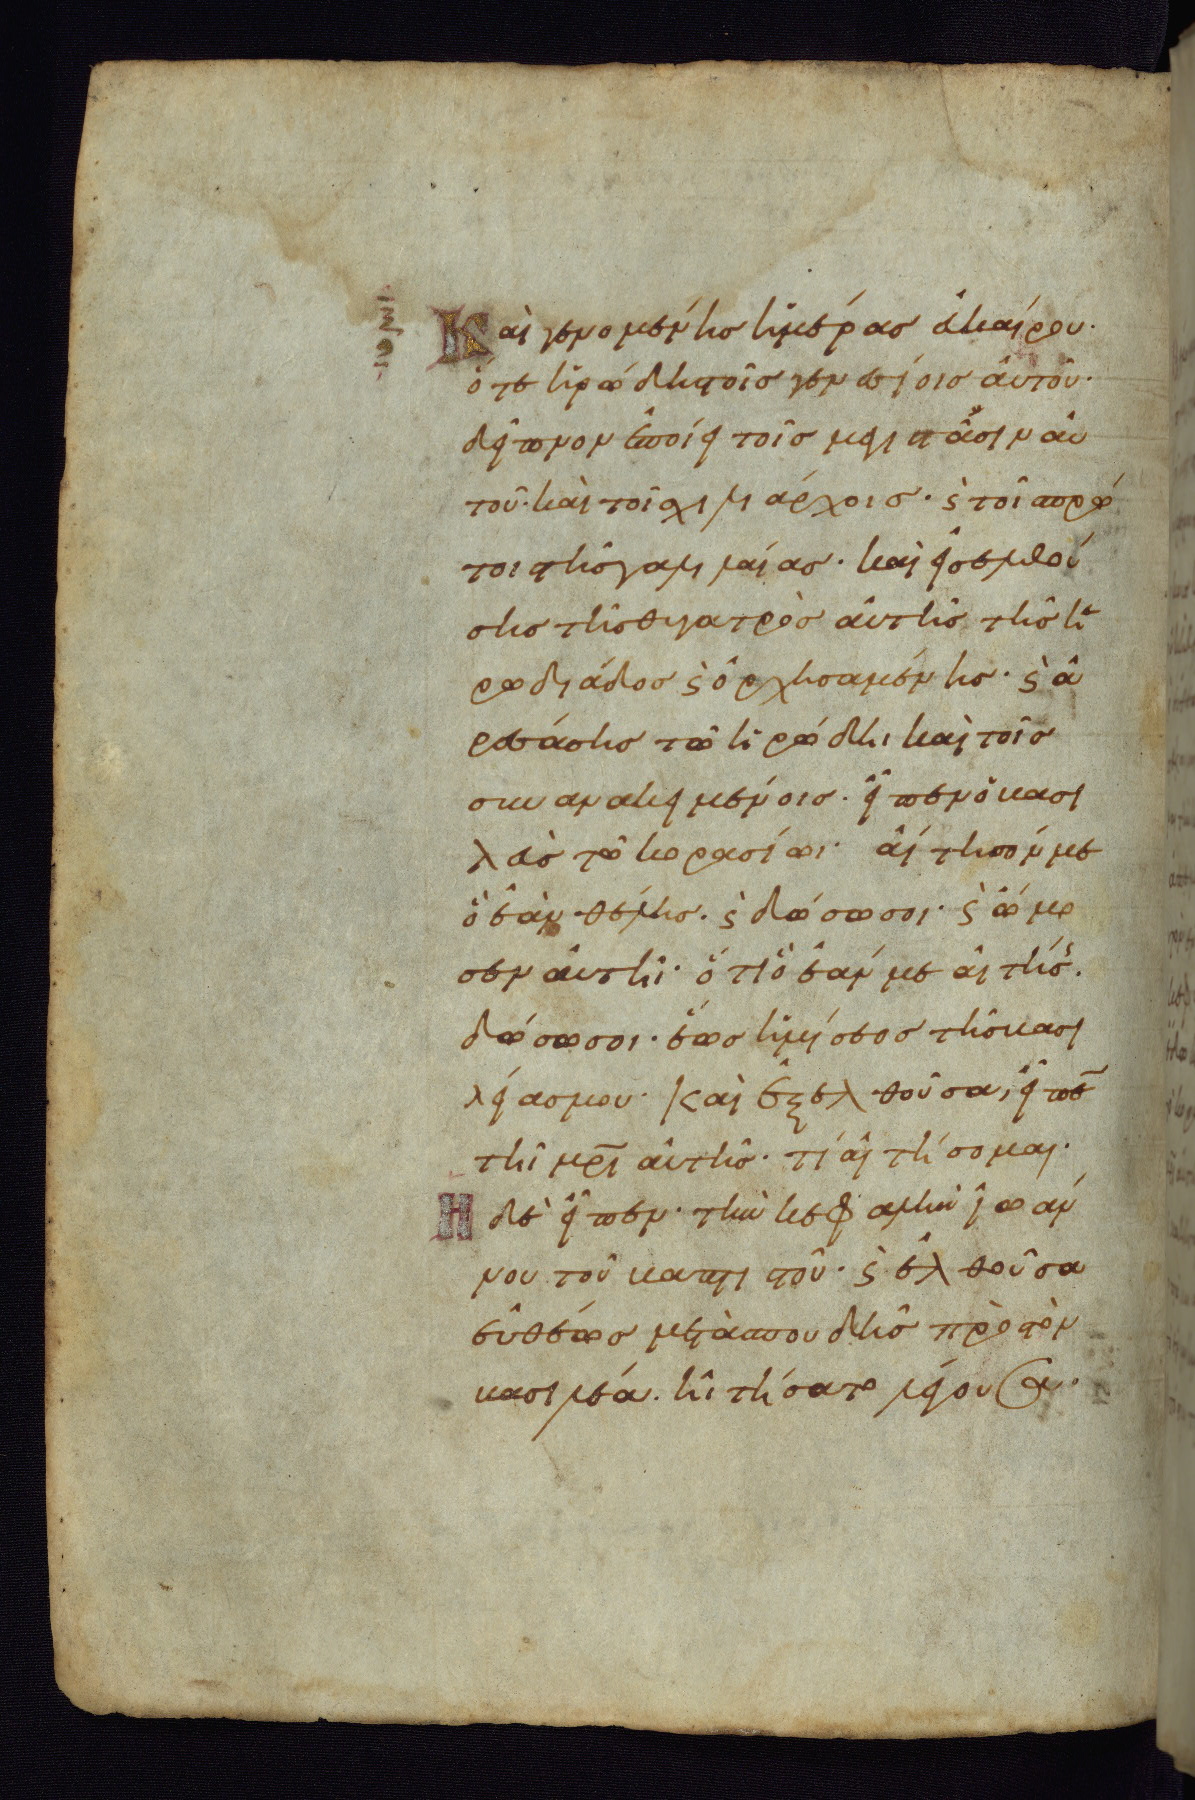 Καὶ γενομένης ἡμέρας ἐυκαίρου·
ὅτε ἡρώδης τοῖς γενεσίοις ἀυτοῦ·
δεῖπνον ἐποίει τοῖς μεγιστᾶσιν ἀυ
τοῦ· καὶ τοῖς χιλιάρχοις· ϛ τοῖς πρώ
τοις τῆς γαλιλαίας· καὶ εἰσελθού
σης τῆς θυγατρὸς ἀυτῆς τῆς ἡ
ρωδιάδος ϛ ὀρχησαμένης· ϛ ἀ
ρεσάσης τῶ ἡρώδηι καὶ τοῖς
συνανακειμένοις· εἶπεν ὁ βασι
λεὺς τῶ κορασίωι· αἴτησόν με
ὃ ἐὰν θέλης· ϛ δώσω σοι· ϛ ὤμο
σεν ἀυτῆι· ὅτι ὃ ἐάν με αἰτήσης·
δώσω σοι· ἕως ἡμίσεος τῆς βασι
λείας μου· Καὶ ἐξελθοῦσα, εἶπε
τῆι μρι ἀυτῆς· τί αἰτήσομαι·
Η δὲ εἶπεν· τὴν κεφαλὴν ἰωάν
νου τοῦ βαπτιστοῦ· ϛ ἐλθοῦσα
ἐυθέως μετὰ σπουδῆς πρὸς τὸν
βασιλέα· ἠιτήσατο λέγουσα·